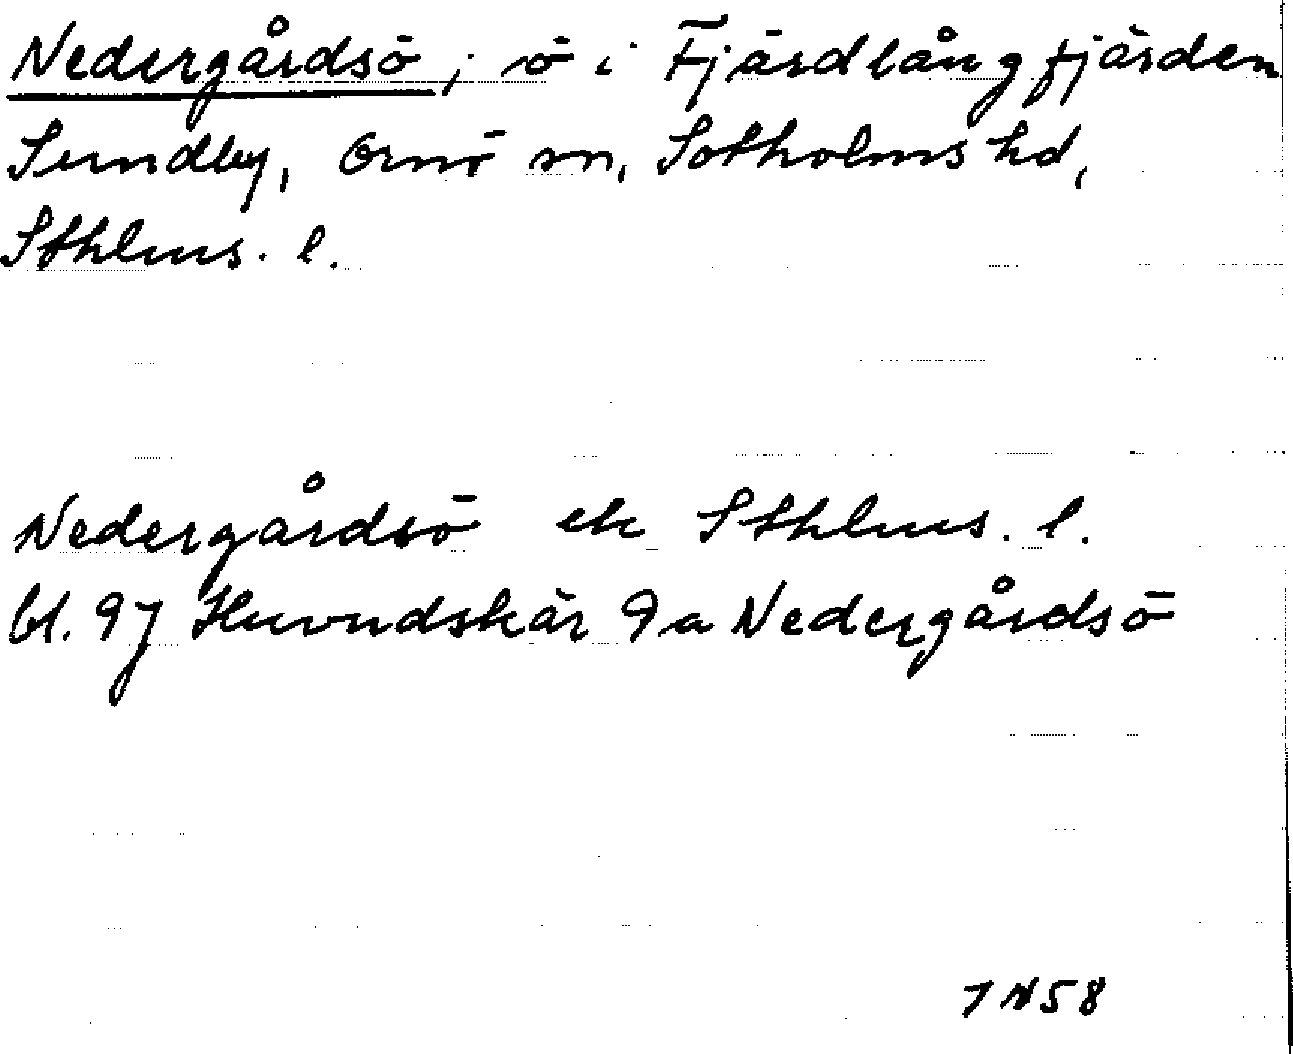 Nedergårdsö, ö i Fjärdlångfjärden
Sundby, Ornö sn, Sotholms hd,
Sthlms. l.
Nedergårdsö ek Sthlms. l.
bl. 97 Huvudskär 9a Nedergårdsö
7 N58